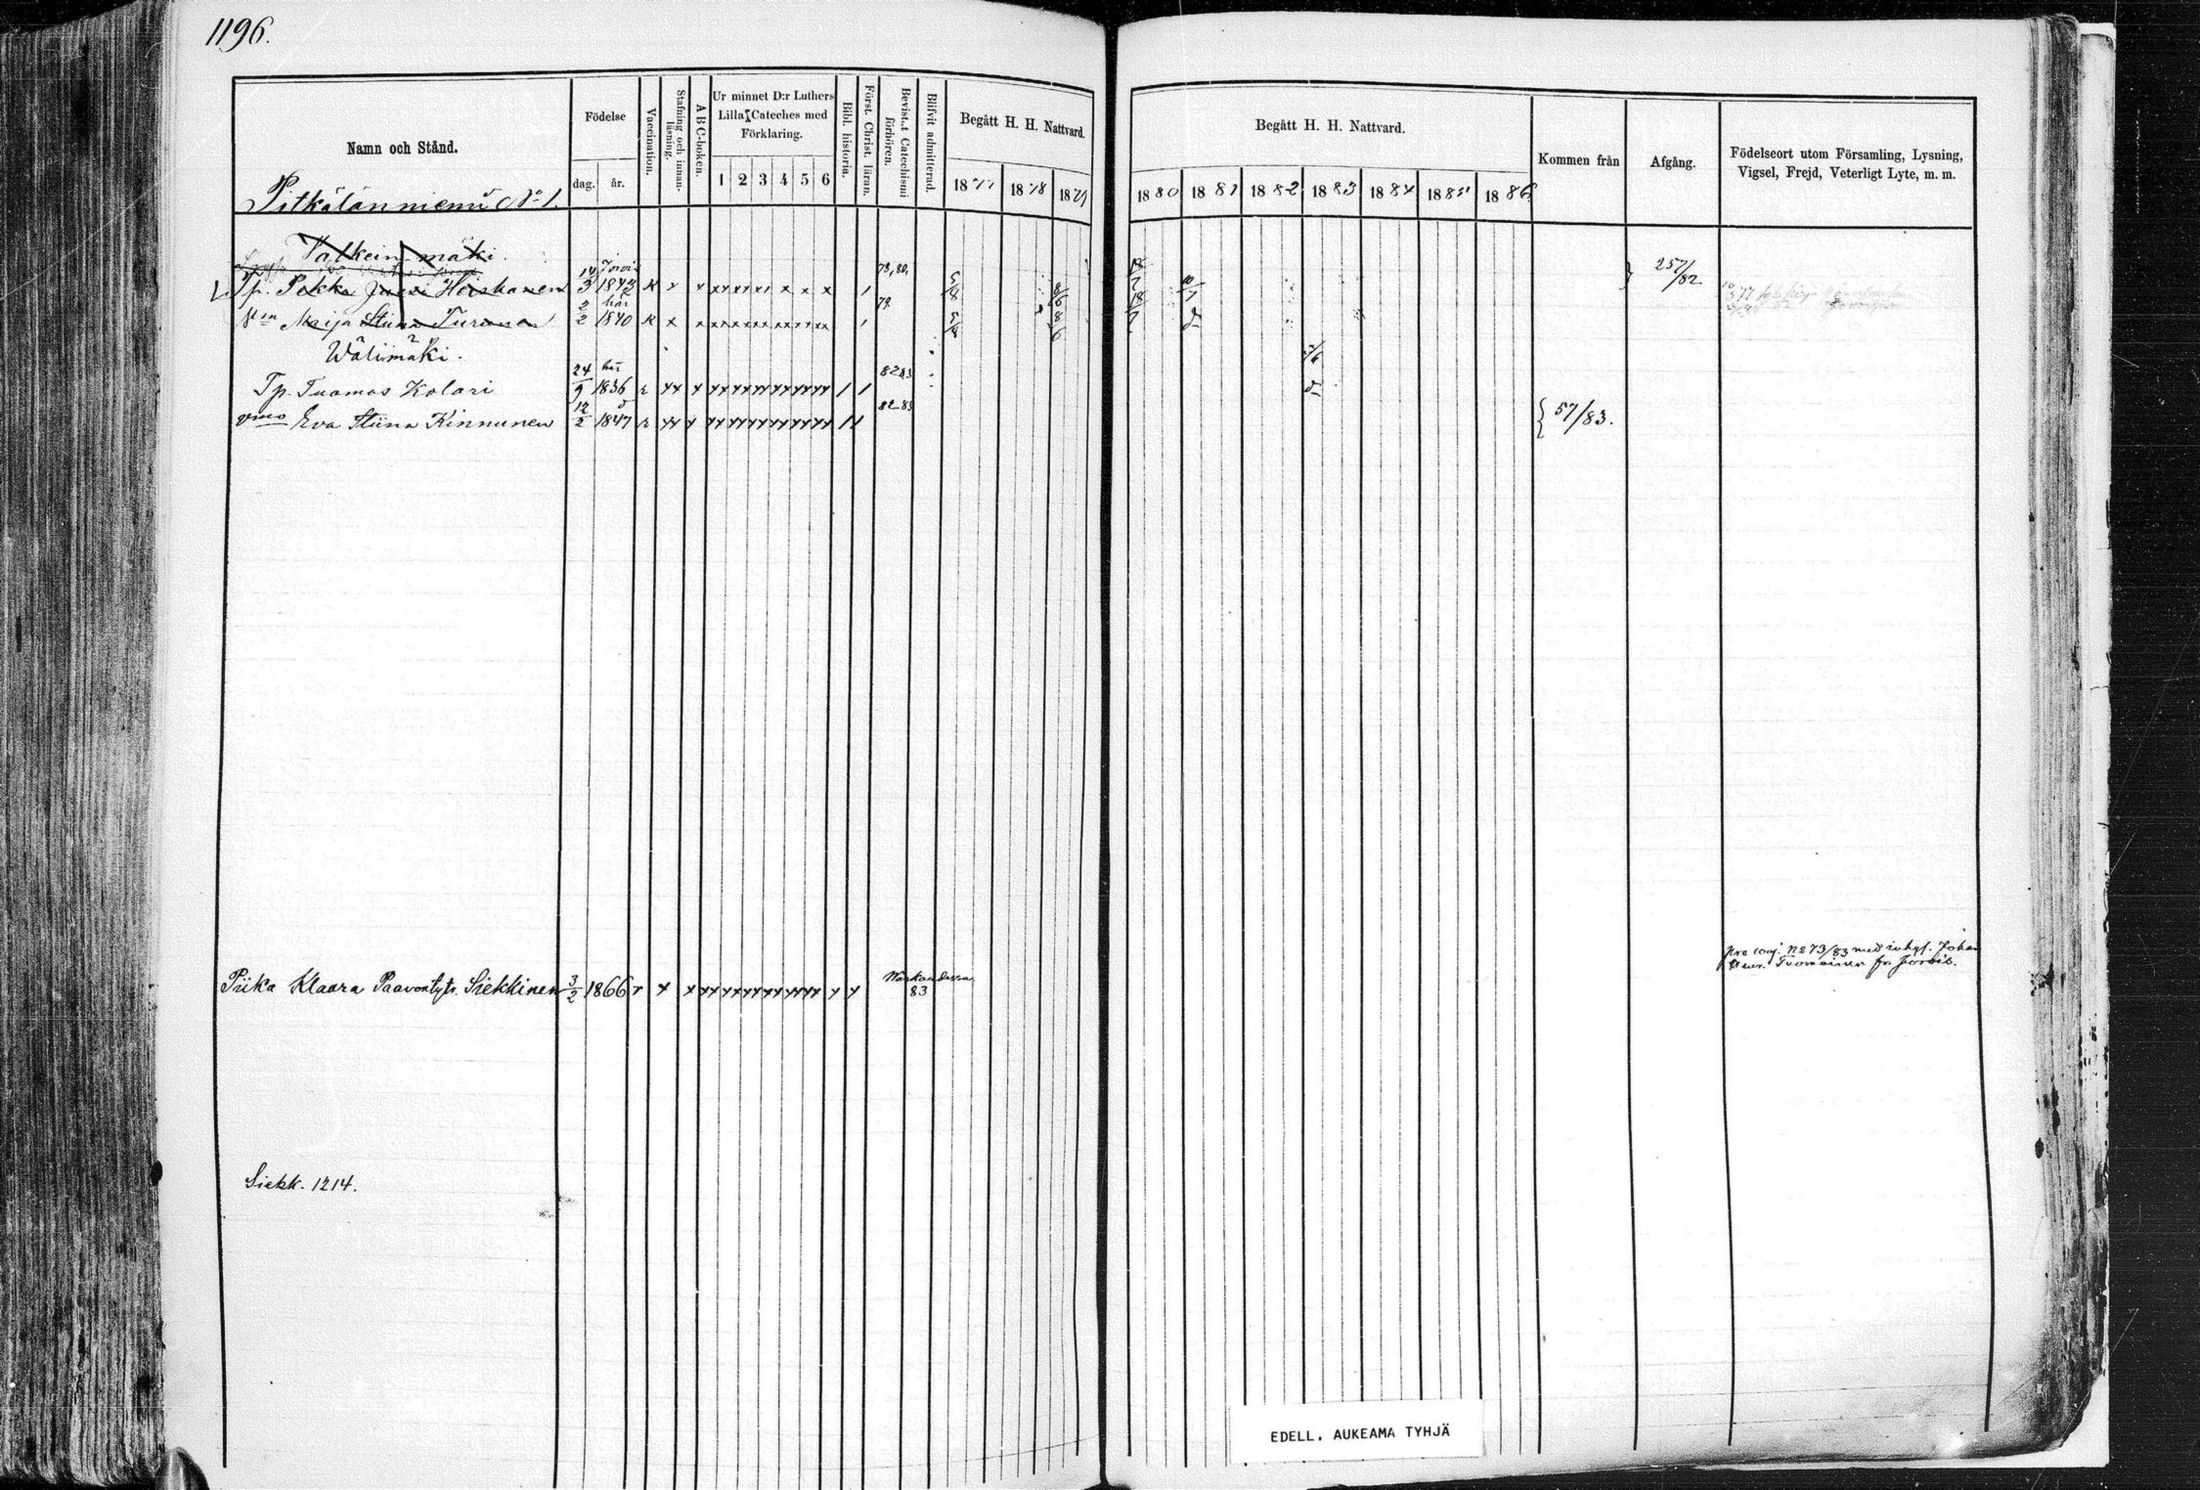 1196.
Namn och Stånd.
Födelse
dag.
år.
Vaccination.
Stafning och innan-läsning.
A B C-boken.
Ur minnet D:r Luthers
Lilla Cateches med
Förklaring.
1 2 3 4 5 6
Bibl. historia.
Först. Christ. läran.
Bevist..t Catechismi förhören.
Blifvit admitterad.
Begått H. H. Nattvard.
1877 1878 1879
Begått H. H. Nattvard.
1880 1881 1882 1883 1884 1885 1886
Kommen från
Afgång.
Födelseort utom Församling, Lysning,
Vigsel, Frejd, Veterligt Lyte, m. m.
Pitkälänniemi No 1.
Valkeinmäki.
Tp. Pekka Heiskanen 14/3 1842 R x x 79, 80, 257/82.
Maija Stiina Turunen 2/2 här 1840 R x x 79.
Wälimäki.
Tp. Tuomas Kolari 24/9 här 1836 r 82 83
vmo Eva Stiina Kinnunen 12/2 d 1847 r 82-83 57/83.
pro conj. No 73/83 med inhys. Johan
Piika Klaara Paavontytr. Siekkinen 3/2 1866 83
Siekk. 1214.
EDELL. AUKEAMA TYHJÄ